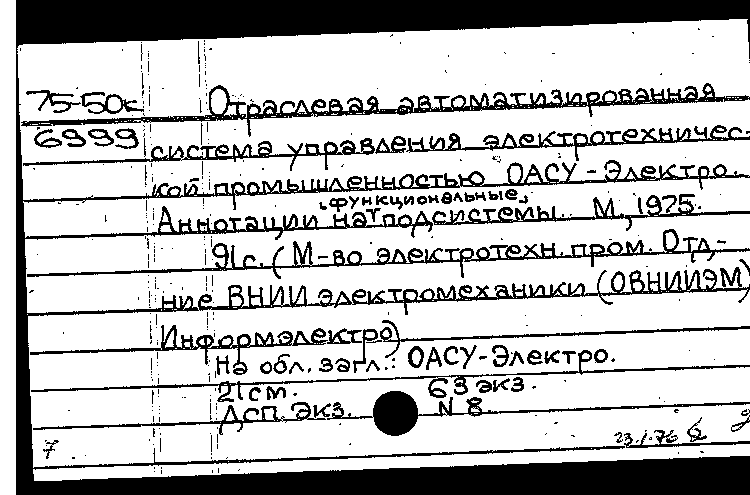 75-50к Отраслевая автоматизированная
6999 система управления электротехничес-
кой промышленностью ОАСУ - Электро.
"функциональные"
Аннотации на подсистемы. М., 1975.
91с. (М-во электротехн. пром. Отд-
ние ВНИИ электромеханики (ОВНИИЭМ)
Информэлектро)
На обл. загл.: ОАСУ-Электро.
21см. 63 экз.
ДСП. Экз. N 8.
7. 23.1.76